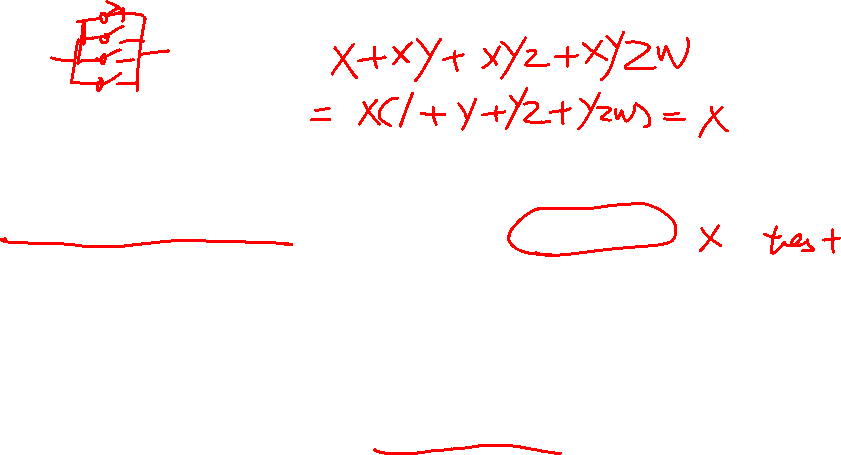 X+XY+XYZ+XYZW
= X(1+Y+YZ+YZW) = X
X